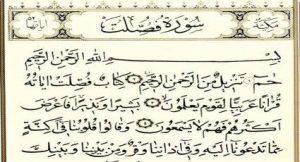 مكية سورة فصلت آياتها
بسم الله الرحمن الرحيم
حم تنزيل من الرحمن الرحيم كتاب فصلت اياته
قرانا عربيا لقوم يعلمون بشيرا ونذيرا فاعرض
اكثرهم فهم لا يسمعون وقالوا قلوبنا في اكنة
مما تدعونا اليه وفي اذاننا وقر ومن بيننا وبينك